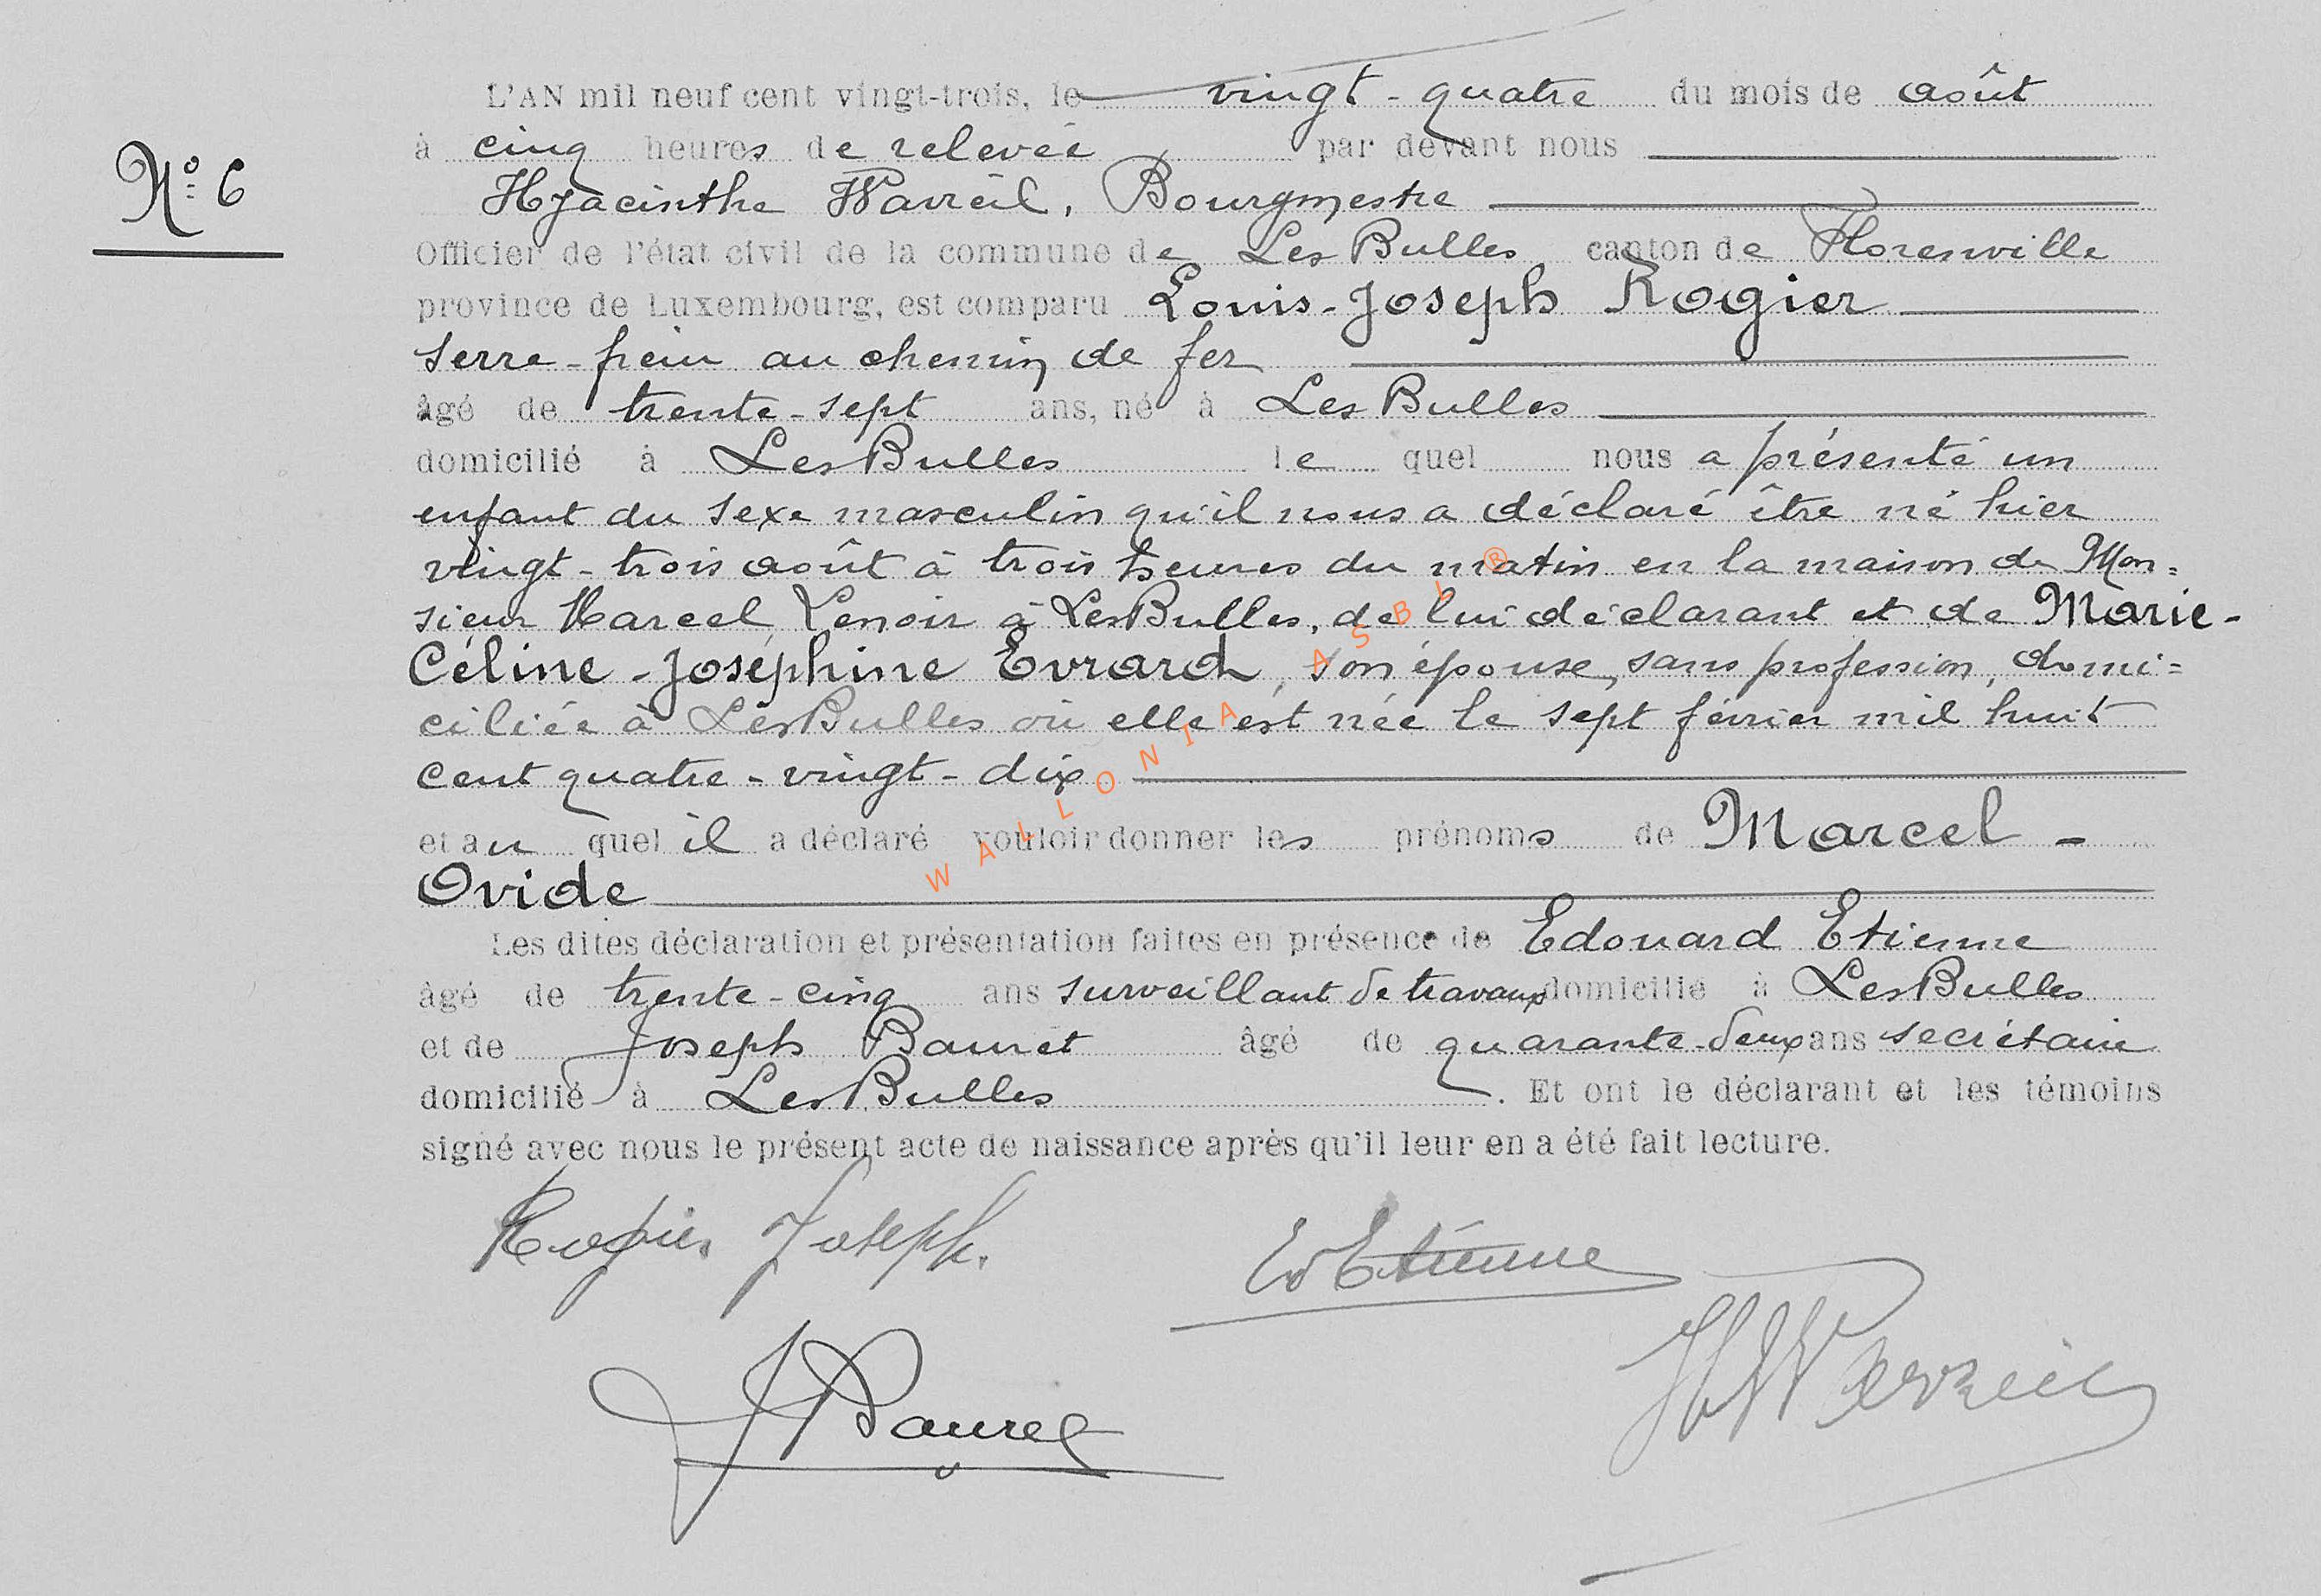 L'AN mil neuf cent vingt-trois, le vingt-quatre du mois de août
à cinq heures de relevée par devant nous
N° 6
Hyacinthe Bourgmestre
Officier de l'état civil de la commune de Les Bulles canton de Florenville
province de Luxembourg, est comparu Louis-Joseph Rogier
serre-frein au chemin de fer
âgé de trente-sept ans, né à Les Bulles
domicilié à Les Bulles le quel nous a présenté un
enfant du sexe masculin qu'il nous a déclaré être né hier
vingt-trois août à trois heures du matin en la maison de Mon=
sieur Marcel Lenoir à Les Bulles, de lui déclarant et de Marie-
Céline-Joséphine Evrard, son épouse, sans profession, domi=
ciliée à Les Bulles où elle est née le sept février mil huit
cent quatre-vingt-dix
et au quel il a déclaré vouloir donner les prénoms de Marcel-
Ovide
Les dites déclaration et présentation faites en présence de Edouard Etienne
âgé de trente-cinq ans surveillant de travaux domicilié à Les Bulles
et de Joseph Bauret âgé de quarante-deux ans secrétaire
domicilié à Les Bulles. Et ont le déclarant et les témoins
signé avec nous le présent acte de naissance après qu'il leur en a été fait lecture.
Rogier Joseph.
Ed Etienne
J Bauret
WALLONIA ASBL ®